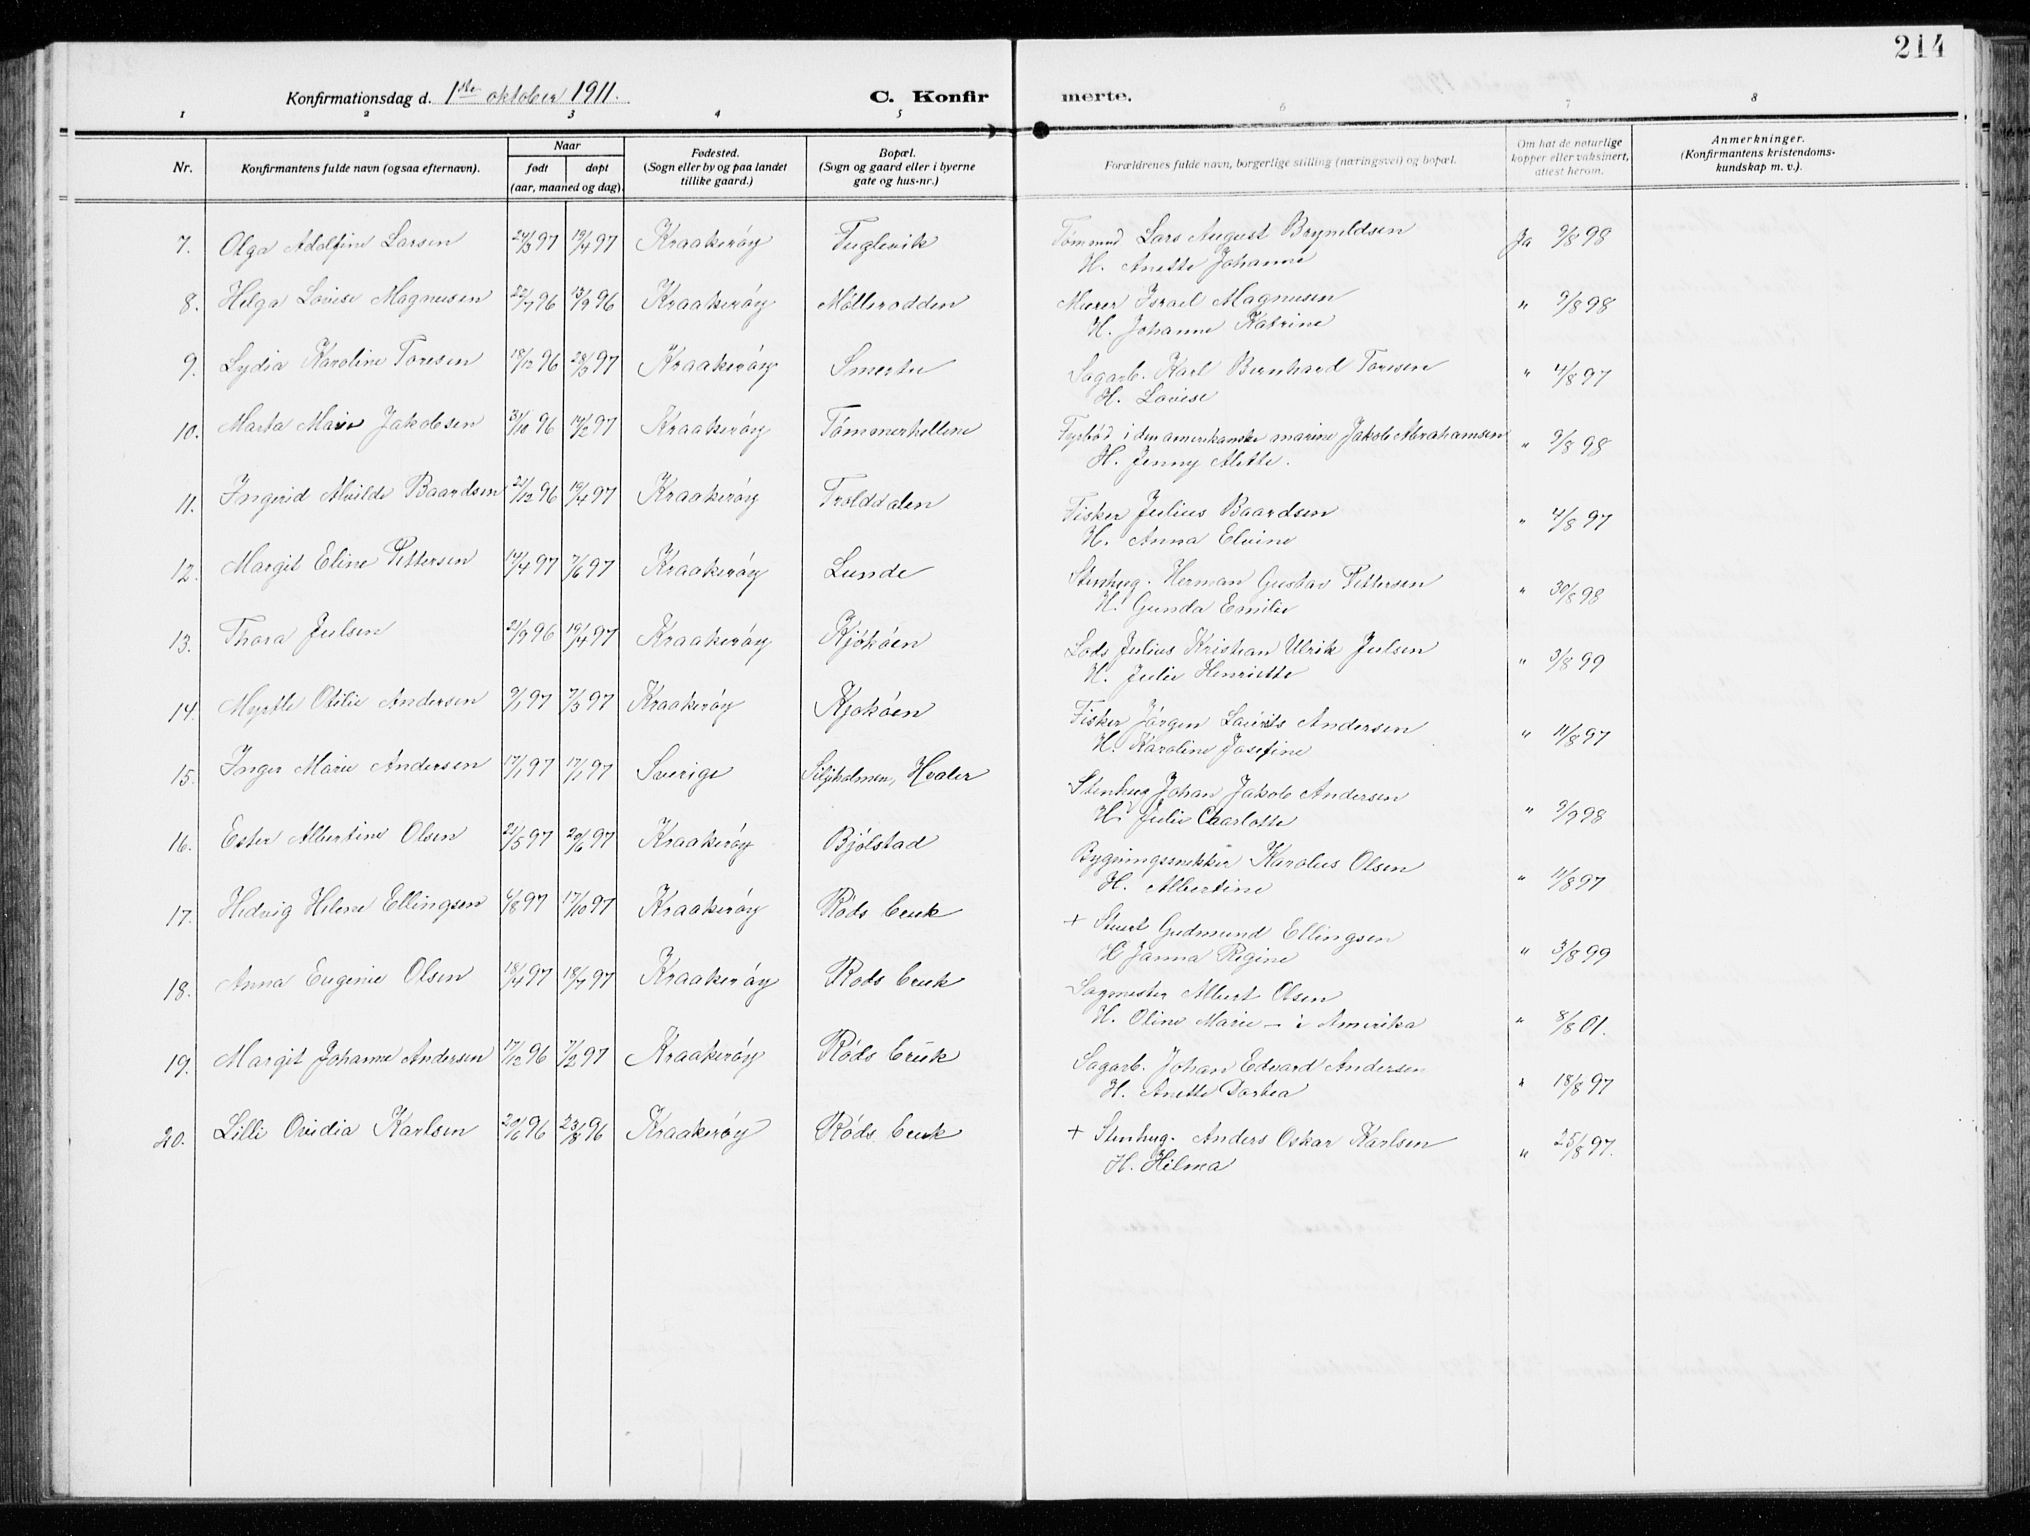 214
Konfirmationsdag d. 1ste oktober 1911. C. Konfir merte.
1 2 3 4 5 6 7 8
Nr. Konfirmantens fulde navn (ogsaa efternavn). Naar født døpt (aar, maaned og dag). Fødested. (Sogn eller by og paa landet tillike gaard.) Bopæl. (Sogn og gaard eller i byerne gate og hus-nr.) Forældrenes fulde navn, borgerlige stilling (næringsvei) og bopæl. Om hat de naturlige kopper eller vaksinert, attest herom. Anmerkninger. (Konfirmantens kristendoms-kundskap m. v.).
7. Olga Adolfine Larsen 24/3 97 19/4 97 Kraakerøy Fuglevik Tømmmd. Lars August Brynildsen Ja 9/8 98
H. Anette Johanne
8. Helga Lovise Magnusen 22/7 96 13/9 96 Kraakerøy Møllerodden Murer Israel Magnusen " 9/8 98
H. Johanne Katrine
9. Lydia Karoline Toresen 18/12 96 28/3 97 Kraakerøy Smertu Sagarb. Karl Bernhard Toresen " 4/8 97
H. Lovise
10. Marta Marie Jakobsen 31/10 96 14/2 97 Kraakerøy Tømmerhellene Fyrbød. i den amerikanske marine Jakob Abrahamsen " 9/8 98
H. Jenny Alette.
11. Ingerid Alvilde Baardsen 21/12 96 19/4 97 Kraakerøy Trolddalen Fisker Julius Baardsen " 4/8 97
H. Anna Elvine
12. Margit Eline Pettersen 14/4 97 7/6 97 Kraakerøy Lunde Stenhug. Herman Gustav Pettersen " 30/8 98
H. Gunda Emilie
13. Thora Julsen 21/9 96 19/4 97 Kraakerøy Kjøkøen Lods Julius Kristian Ulrik Julsen " 3/8 99
H. Julie Henriette
14. Myrtle Otilie Andersen 9/1 97 7/3 97 Kraakerøy Kjøkøen Fisker Jørgen Laurits Andersen " 11/8 97
H. Karoline Josefine
15. Inger Marie Andersen 17/1 97 17/1 97 Sverige Siljeholmen, Hvaler Stenhug Johan Jakob Andersen " 9/9 98
H. Julie Charlotte
16. Ester Albertine Olsen 21/5 97 20/6 97 Kraakerøy Bjølstad Bygningssnekker Karolus Olsen " 11/8 97
H. Albertine
17. Hedvig Helene Ellingsen 6/8 97 17/10 97 Kraakerøy Røds bruk + Stuert Gudmund Ellingsen " 3/8 99
H Janna Regine
18. Anna Eugenie Olsen 18/4 97 18/7 97 Kraakerøy Røds bruk Sagmester Albert Olsen
H. Oline Marie – i Amerika " 8/8 01.
19. Margit Johanne Andersen 17/12 96 7/2 97 Kraakerøy Røds bruk Sagarb. Johan Edvard Andersen " 18/8 97
H. Anette Dortea
20. Lilli Ovidia Karlsen 20/6 96 23/8 96 Kraakerøy Røds bruk + Stenhug. Anders Oskar Karlsen " 25/8 97.
H. Hilma